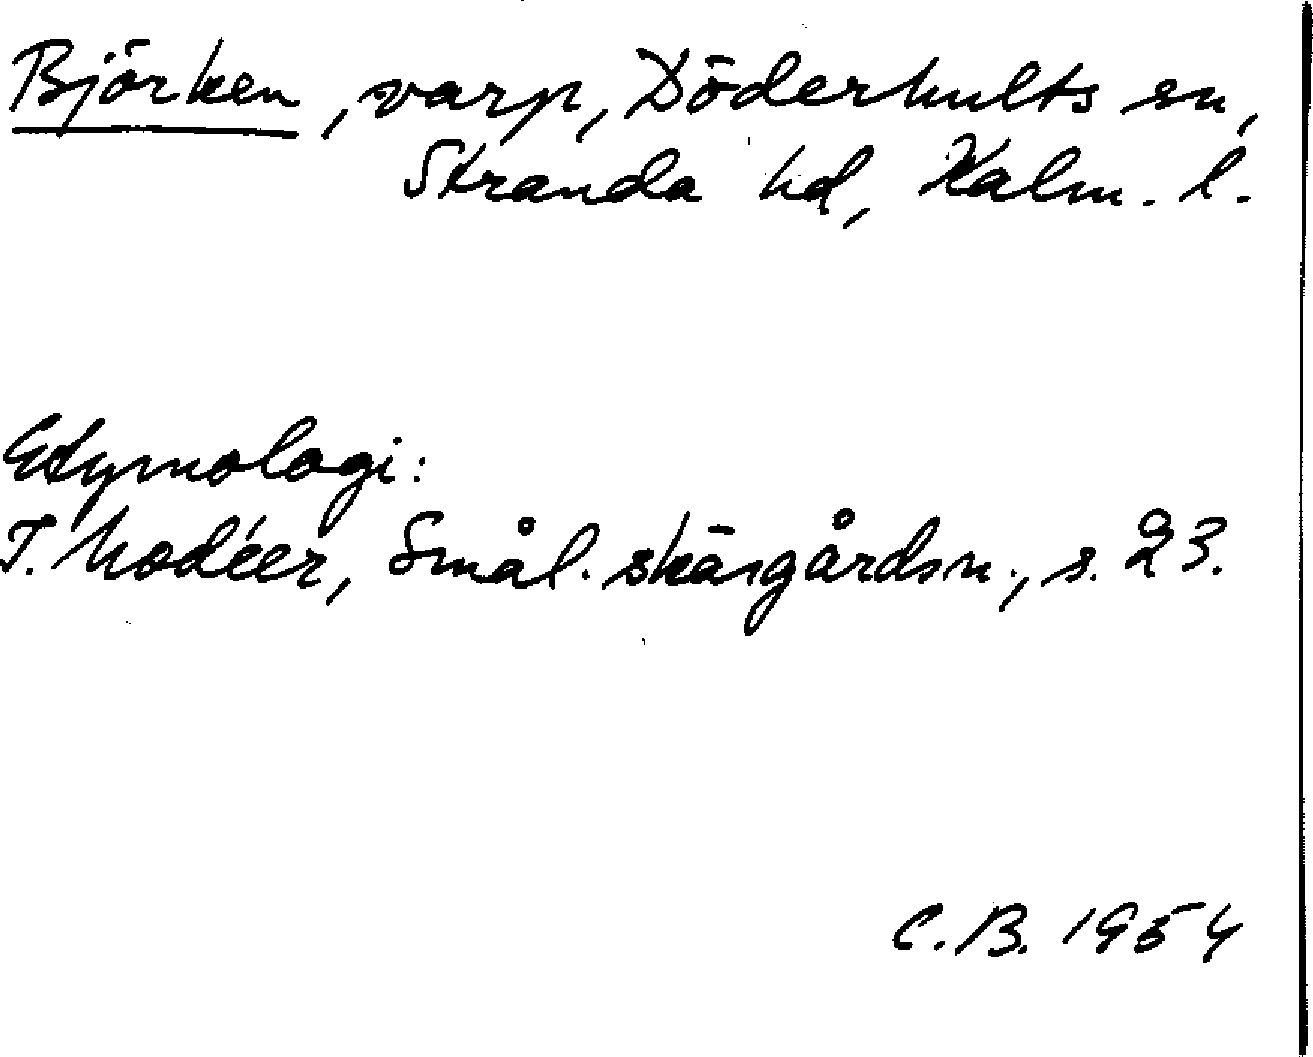 Björken, varp, Döderhults sn,
Stranda hd, Kalm. l.
Etymologi:
I. Modéer, Smål. skärgårdsn., s. 23.
C.B. 1954